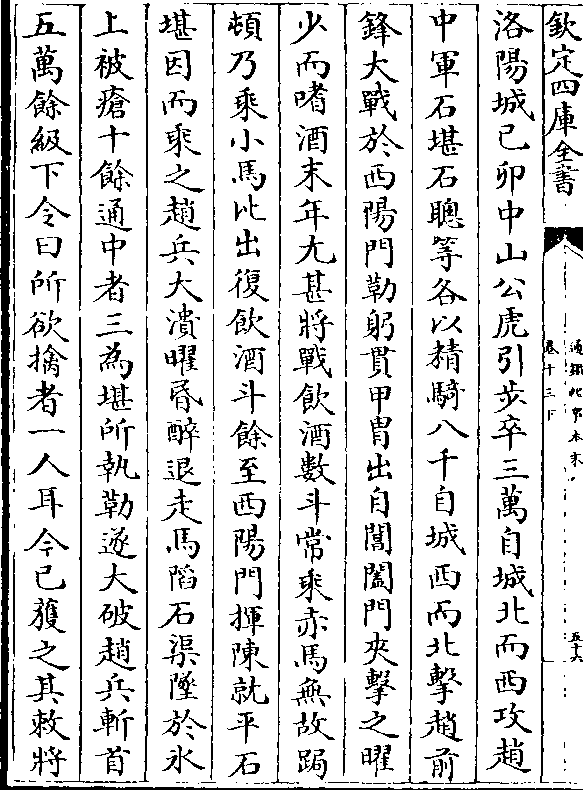 欽定四庫全書
通鑑紀事本末
卷十三下
五十六
洛陽城己卯中山公虎引步卒三萬自城北而西攻趙
中軍石堪石聰等各以精騎八千自城西而北擊趙前
鋒大戰於西陽門勒躬貫甲胄出自閶闔門夾擊之曜
少而嗜酒末年尤甚將戰飲酒數斗常乘赤馬無故跼
頓乃乘小馬比出復飲酒斗餘至西陽門揮陳就平石
堪因而乘之趙兵大潰曜昏醉退走馬陷石渠墜於氷
上被瘡十餘通中者三為堪所執勒遂大破趙兵斬首
五萬餘級下令曰所欲擒者一人耳今已獲之其敕將